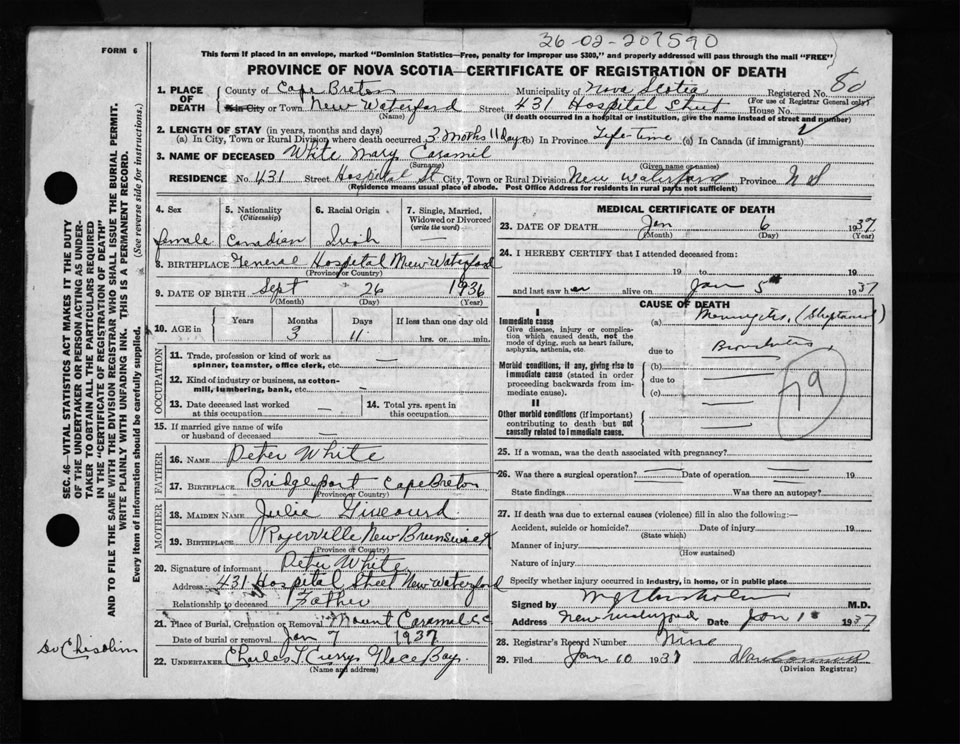 26-02-207590
FORM 6
This form if placed in an envelope, marked "Dominion Statistics—Free, penalty for improper use $300," and properly addressed will pass through the mail "FREE"
PROVINCE OF NOVA SCOTIA—CERTIFICATE OF REGISTRATION OF DEATH
80
1. PLACE OF DEATH
County of Cape Breton Municipality of Nova Scotia Registered No.
(For use of Registrar General only)
City or Town New Waterford Street 431 Hospital Street House No.
(Name) (If death occurred in a hospital or institution, give the name instead of street and number)
2. LENGTH OF STAY (in years, months and days)
(a) In City, Town or Rural Division where death occurred 3 Months 11 days (b) In Province Life-time (c) In Canada (if immigrant)
3. NAME OF DECEASED White Mary Caramil
(Surname) (Given name or names)
RESIDENCE No. 431 Street Hospital St City, Town or Rural Division New Waterford Province N S
(Residence means usual place of abode. Post Office Address for residents in rural parts not sufficient)
4. Sex
female
5. Nationality
(Citizenship)
Canadian
6. Racial Origin
Irish
7. Single, Married, Widowed or Divorced
(write the word)
—
8. BIRTHPLACE General Hospital New Waterford
(Province or Country)
9. DATE OF BIRTH Sept 26 1936
(Month) (Day) (Year)
10. AGE in
Years Months Days If less than one day old
3 11 hrs. or min.
OCCUPATION
11. Trade, profession or kind of work as spinner, teamster, office clerk, etc. —
12. Kind of industry or business, as cotton-mill, lumbering, bank, etc. —
13. Date deceased last worked at this occupation —
14. Total yrs. spent in this occupation.
15. If married give name of wife or husband of deceased —
FATHER
16. NAME Peter White
17. BIRTHPLACE Bridgeport Cape Breton
(Province or Country)
MOTHER
18. MAIDEN NAME Julie
19. BIRTHPLACE Rogerville New Brunswick
(Province or Country)
20. Signature of informant Peter White
Address 431 Hospital Street New Waterford
Relationship to deceased Father
21. Place of Burial, Cremation or Removal Mount Caramel
Date of burial or removal Jan 7 1937
22. UNDERTAKER Charles Curry Glace Bay
(Name and address)
MEDICAL CERTIFICATE OF DEATH
23. DATE OF DEATH Jan 6 1937
(Month) (Day) (Year)
24. I HEREBY CERTIFY that I attended deceased from:
19 to 19
and last saw her alive on Jan 5 1937
CAUSE OF DEATH
I
Immediate cause
Give disease, injury or complication which caused death, not the mode of dying, such as heart failure, asphyxia, asthenia, etc.
(a)
due to Bronchitis
Morbid conditions, if any, giving rise to immediate cause (stated in order proceeding backwards from immediate cause).
(b)
due to
(c)
79
II
Other morbid conditions (if important) contributing to death but not causally related to immediate cause.
25. If a woman, was the death associated with pregnancy?
26. Was there a surgical operation? Date of operation 19
State findings Was there an autopsy?
27. If death was due to external causes (violence) fill in also the following:—
Accident, suicide or homicide? Date of injury 19
(State which)
Manner of injury
(How sustained)
Nature of injury
Specify whether injury occurred in industry, in home, or in public place
Signed by M.D.
Address New Waterford Date Jan 1937
28. Registrar's Record Number Nine
29. Filed Jan 10 1937
(Division Registrar)
SEC. 46—VITAL STATISTICS ACT MAKES IT THE DUTY
OF THE UNDERTAKER OR PERSON ACTING AS UNDER-
TAKER TO OBTAIN ALL THE PARTICULARS REQUIRED
IN THE "CERTIFICATE OF REGISTRATION OF DEATH"
AND TO FILE THE SAME WITH THE DIVISION REGISTRAR WHO SHALL ISSUE THE BURIAL PERMIT.
WRITE PLAINLY WITH UNFADING INK. THIS IS A PERMANENT RECORD.
Every item of information should be carefully supplied. (See reverse side for instructions.)
Dr Chisolim